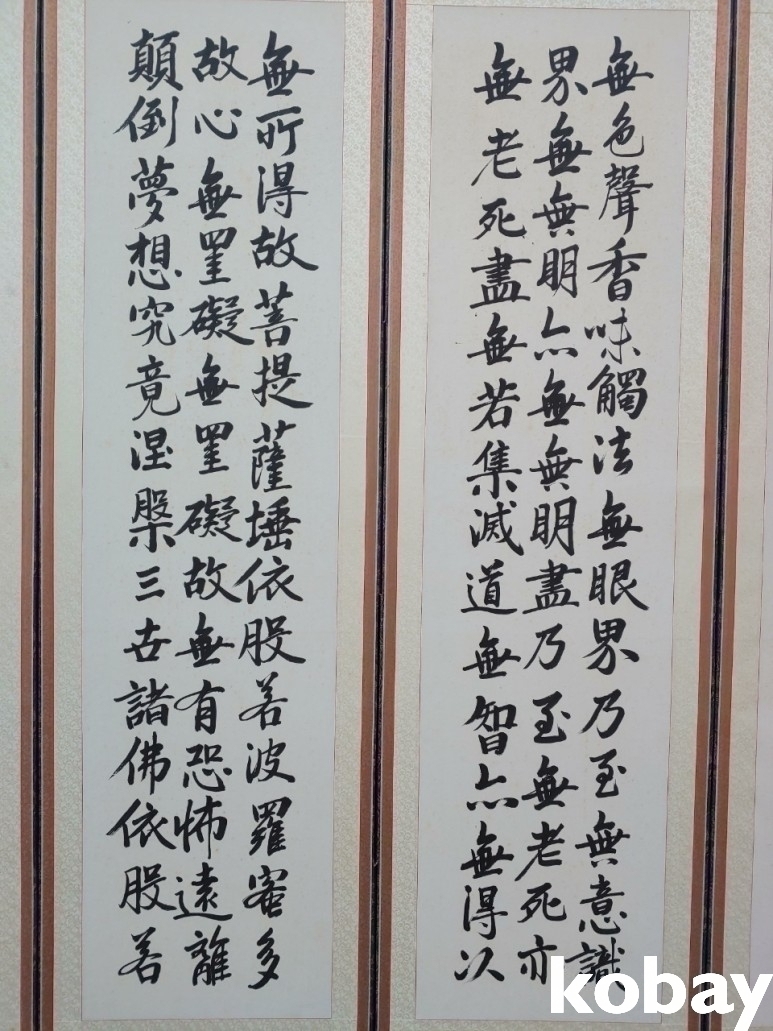 無色聲香味觸法無眼界乃至無意識
界無無明亦無無明盡乃至無老死亦
無老死盡無苦集滅道無智亦無得以
無所得故菩提薩埵依般若波羅蜜多
故心無罣礙無罣礙故無有恐怖遠離
顛倒夢想究竟涅槃三世諸佛依般若
kobay